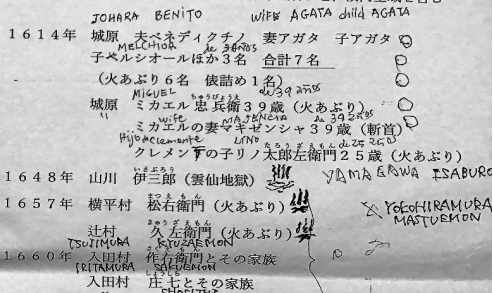 JOHARA BENITO wife AGATA child AGATA
1614年 城原 夫ベネディクチノ 妻アガタ 子アガタ
MELCHIOR de 3 años
子ヤルシオールほか3名 合計7名
(火あぶり6名 俵詰め1名)
MIGUEL ちゅうびょうえ de 39 años
城原 ミカエル忠兵衛39歳(火あぶり)
" wife MAJENCIA de 39 años
ミカエルの妻マキゼンシャ39歳(斬首)
Hijo de Clemente LINO たろうざえもん de 25 años
クレメンテの子リノ太郎左衛門25歳(火あぶり)
いさぶろう
1648年 山川 伊三郎(雲仙地獄) YAMAGAWA ISABURO
まつえもん
1657年 横平村 松右衛門(火あぶり) YOKOHIRAMURA MASTUEMON
きゅうざえもん
辻村 久左衛門(火あぶり)
TSUJIMURA KYUZAEMON
1660年 入田村 作右衛門とその家族
IRITAMURA SAKUEMON しょうしち
入田村 庄七とその家族